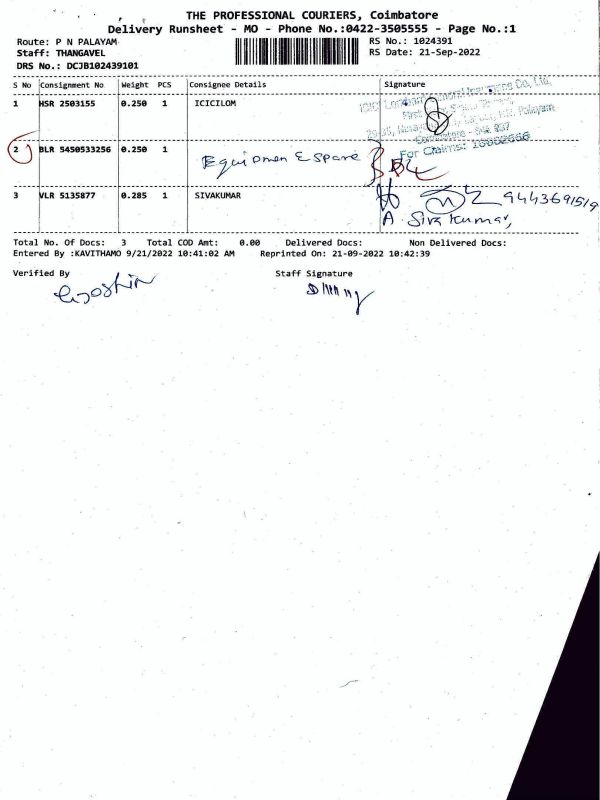 THE PROFESSIONAL COURIERS, Coimbatore
Delivery Runsheet - MO - Phone No.:0422-3505555 - Page No.:1
Route: P N PALAYAM
RS No.: 1024391
Staff: THANGAVEL
RS Date: 21-Sep-2022
DRS No.: DCJB102439101
S No Consignment No Weight PCS Consignee Details Signature
1 HSR 2503155 0.250 1 ICICILOM
For Claims:
2 BLR 5450533256 0.250 1 Equipmen & Spare
3 VLR 5135877 0.285 1 SIVAKUMAR
A. Siva Kumar,
Total No. Of Docs: 3 Total COD Amt: 0.00 Delivered Docs: Non Delivered Docs:
Entered By :KAVITHAMO 9/21/2022 10:41:02 AM Reprinted On: 21-09-2022 10:42:39
Verified By Staff Signature